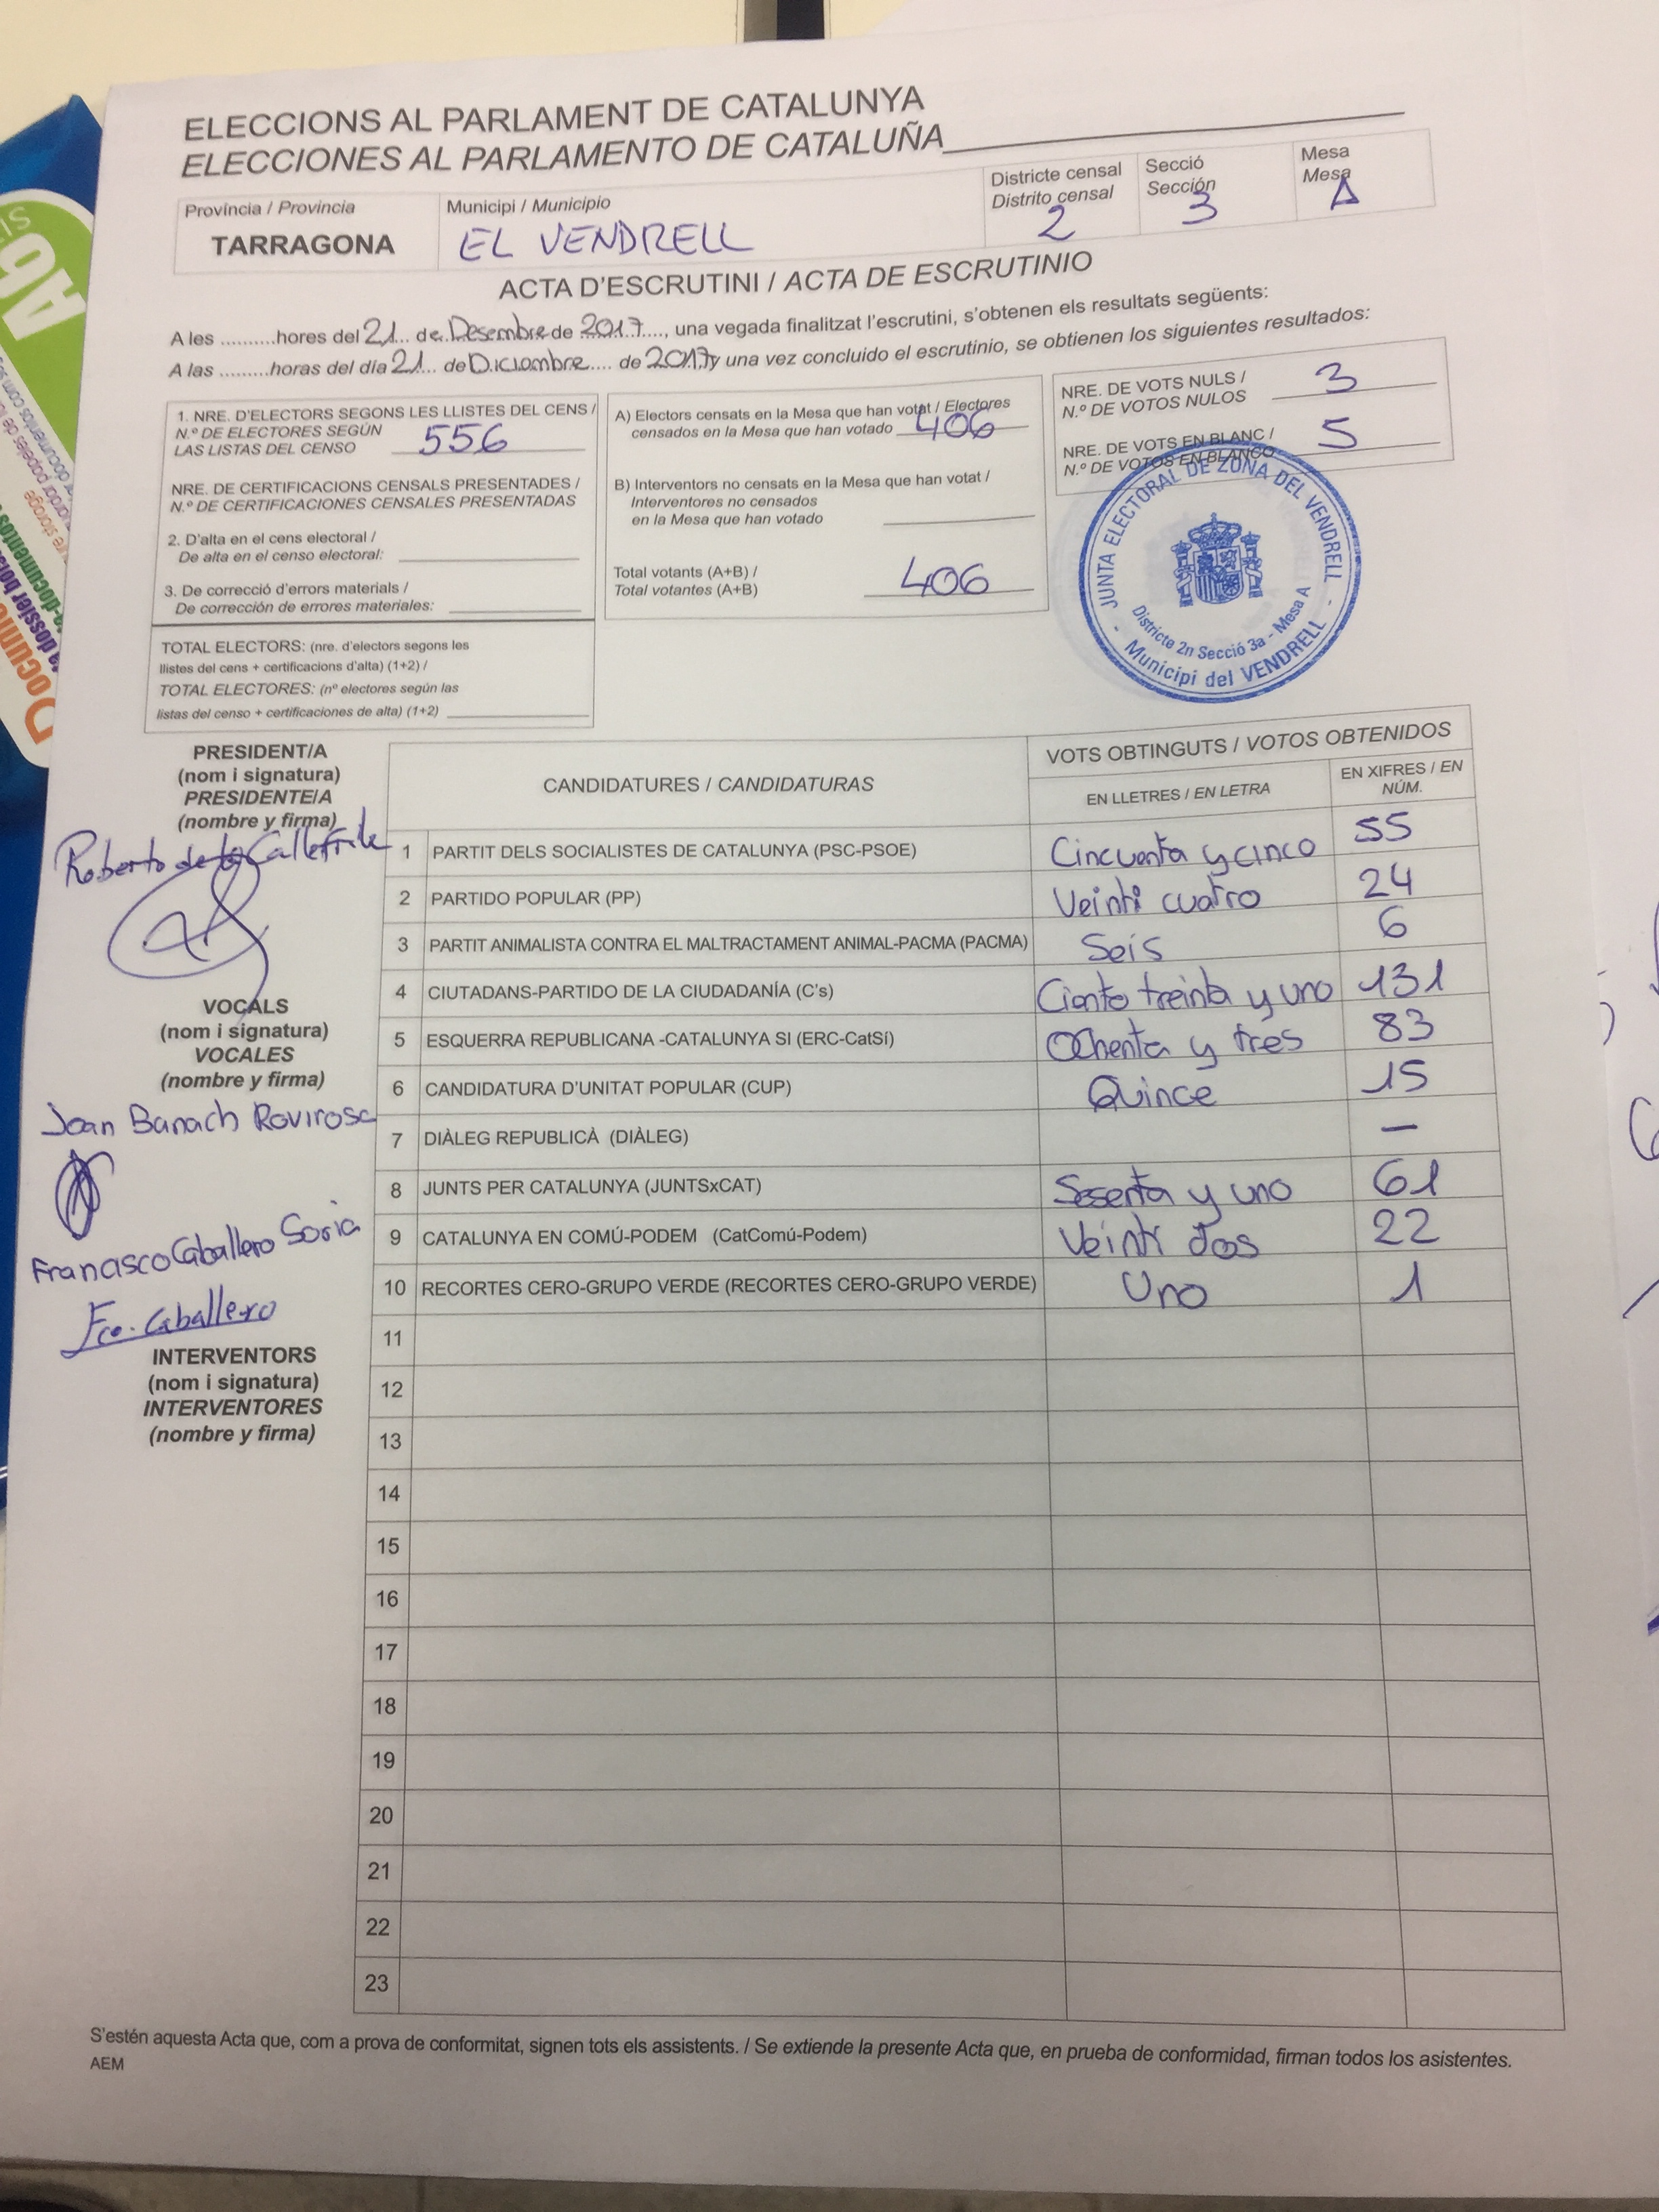 ELECCIONS AL PARLAMENT DE CATALUNYA
ELECCIONES AL PARLAMENTO DE CATALUÑA
Província / Provincia
TARRAGONA
Municipi / Municipio
EL VENDRELL
Districte censal
Distrito censal
2
Secció
Sección
3
Mesa
Mesa
A
ACTA D'ESCRUTINI / ACTA DE ESCRUTINIO
A les ..........hores del 21... de Desembre de 2017...., una vegada finalitzat l'escrutini, s'obtenen els resultats següents:
A las .........horas del día 21... de Diciembre.... de 2017, y una vez concluido el escrutinio, se obtienen los siguientes resultados:
1. NRE. D'ELECTORS SEGONS LES LLISTES DEL CENS /
N.º DE ELECTORES SEGÚN
LAS LISTAS DEL CENSO 556
NRE. DE CERTIFICACIONS CENSALS PRESENTADES /
N.º DE CERTIFICACIONES CENSALES PRESENTADAS
2. D'alta en el cens electoral /
De alta en el censo electoral:
3. De correcció d'errors materials /
De corrección de errores materiales:
TOTAL ELECTORS: (nre. d'electors segons les
llistes del cens + certificacions d'alta) (1+2) /
TOTAL ELECTORES: (nº electores según las
listas del censo + certificaciones de alta) (1+2)
A) Electors censats en la Mesa que han votat / Electores
censados en la Mesa que han votado 406
B) Interventors no censats en la Mesa que han votat /
Interventores no censados
en la Mesa que han votado
Total votants (A+B) /
Total votantes (A+B) 406
NRE. DE VOTS NULS /
N.º DE VOTOS NULOS 3
NRE. DE VOTS EN BLANC /
N.º DE VOTOS EN BLANCO 5
JUNTA ELECTORAL DE ZONA DEL VENDRELL
Districte 2n Secció 3a - Mesa A
- Municipi del VENDRELL -
PRESIDENT/A
(nom i signatura)
PRESIDENTE/A
(nombre y firma)
Roberto de la Calle
VOCALS
(nom i signatura)
VOCALES
(nombre y firma)
Joan Banach Rovirosa
Francisco Caballero Soria
Fco. Caballero
INTERVENTORS
(nom i signatura)
INTERVENTORES
(nombre y firma)
CANDIDATURES / CANDIDATURAS
VOTS OBTINGUTS / VOTOS OBTENIDOS
EN LLETRES / EN LETRA
EN XIFRES / EN
NÚM.
1 PARTIT DELS SOCIALISTES DE CATALUNYA (PSC-PSOE) Cincuenta y cinco 55
2 PARTIDO POPULAR (PP) Veinti cuatro 24
3 PARTIT ANIMALISTA CONTRA EL MALTRACTAMENT ANIMAL-PACMA (PACMA) Seis 6
4 CIUTADANS-PARTIDO DE LA CIUDADANÍA (C's) Ciento treinta y uno 131
5 ESQUERRA REPUBLICANA -CATALUNYA SI (ERC-CatSí) Ochenta y tres 83
6 CANDIDATURA D'UNITAT POPULAR (CUP) Quince 15
7 DIÀLEG REPUBLICÀ (DIÀLEG) —
8 JUNTS PER CATALUNYA (JUNTSxCAT) Sesenta y uno 61
9 CATALUNYA EN COMÚ-PODEM (CatComú-Podem) Veinti dos 22
10 RECORTES CERO-GRUPO VERDE (RECORTES CERO-GRUPO VERDE) Uno 1
11
12
13
14
15
16
17
18
19
20
21
22
23
S'estén aquesta Acta que, com a prova de conformitat, signen tots els assistents. / Se extiende la presente Acta que, en prueba de conformidad, firman todos los asistentes.
AEM